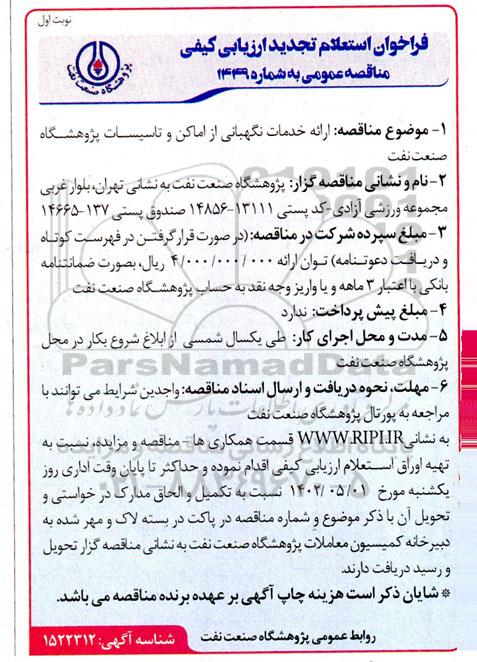 نوبت اول
فراخوان استعلام تجدید ارزیابی کیفی
مناقصه عمومی به شماره ۱۴۴۹
پژوهشگاه صنعت نفت
۱- موضوع مناقصه: ارائه خدمات نگهبانی از اماکن و تاسیسات پژوهشگاه
صنعت نفت
۲- نام و نشانی مناقصه گزار: پژوهشگاه صنعت نفت به نشانی تهران، بلوار غربی
مجموعه ورزشی آزادی -کد پستی ۱۳۱۱۱-۱۴۸۵۶ صندوق پستی ۱۳۷-۱۴۶۶۵
۳- مبلغ سپرده شرکت در مناقصه: (در صورت قرار گرفتن در فهرست کوتاه
و دریافت دعوتنامه) توان ارائه ۴/۰۰۰/۰۰۰/۰۰۰ ریال، بصورت ضمانتنامه
بانکی با اعتبار ۳ ماهه و یا واریز وجه نقد به حساب پژوهشگاه صنعت نفت
۴- مبلغ پیش پرداخت: ندارد
۵- مدت و محل اجرای کار: طی یکسال شمسی از ابلاغ شروع بکار در محل
پژوهشگاه صنعت نفت
ParsNamadData
۶- مهلت، نحوه دریافت و ارسال اسناد مناقصه: واجدین شرایط می توانند با
مراجعه به پورتال پژوهشگاه صنعت نفت
به نشانی WWW.RIPI.IR قسمت همکاری ها- مناقصه و مزایده، نسبت به
تهیه اوراق استعلام ارزیابی کیفی اقدام نموده و حداکثر تا پایان وقت اداری روز
یکشنبه مورخ ۱۴۰۲/۰۵/۰۱ نسبت به تکمیل و الحاق مدارک در خواستی و
تحویل آن با ذکر موضوع و شماره مناقصه در پاکت در بسته لاک و مهر شده به
دبیرخانه کمیسیون معاملات پژوهشگاه صنعت نفت به نشانی مناقصه گزار تحویل
و رسید دریافت دارند.
* شایان ذکر است هزینه چاپ آگهی بر عهده برنده مناقصه می باشد.
روابط عمومی پژوهشگاه صنعت نفت
شناسه آگهی: ۱۵۲۲۳۱۲